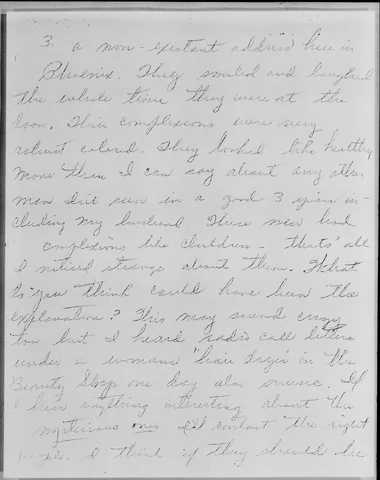 3. a non-existant address here in
Phoenix. They smiled and laughed
the whole time they were at the
door. Their complexions were very
robust colored. They looked like healthy
more than I can say about any other
man I've seen in a good 3 years in-
cluding my husband. These men had
complexions like children - thats' all
I noticed strange about them. What
do you think could have been the
explanation? This may sound crazy
too but I heard radio call letters
under a womans "hair dryer" in the
Beauty Shop one day also music. If
I hear anything interesting about the
mysterious ones I'll contact the right
people. I think if they should be